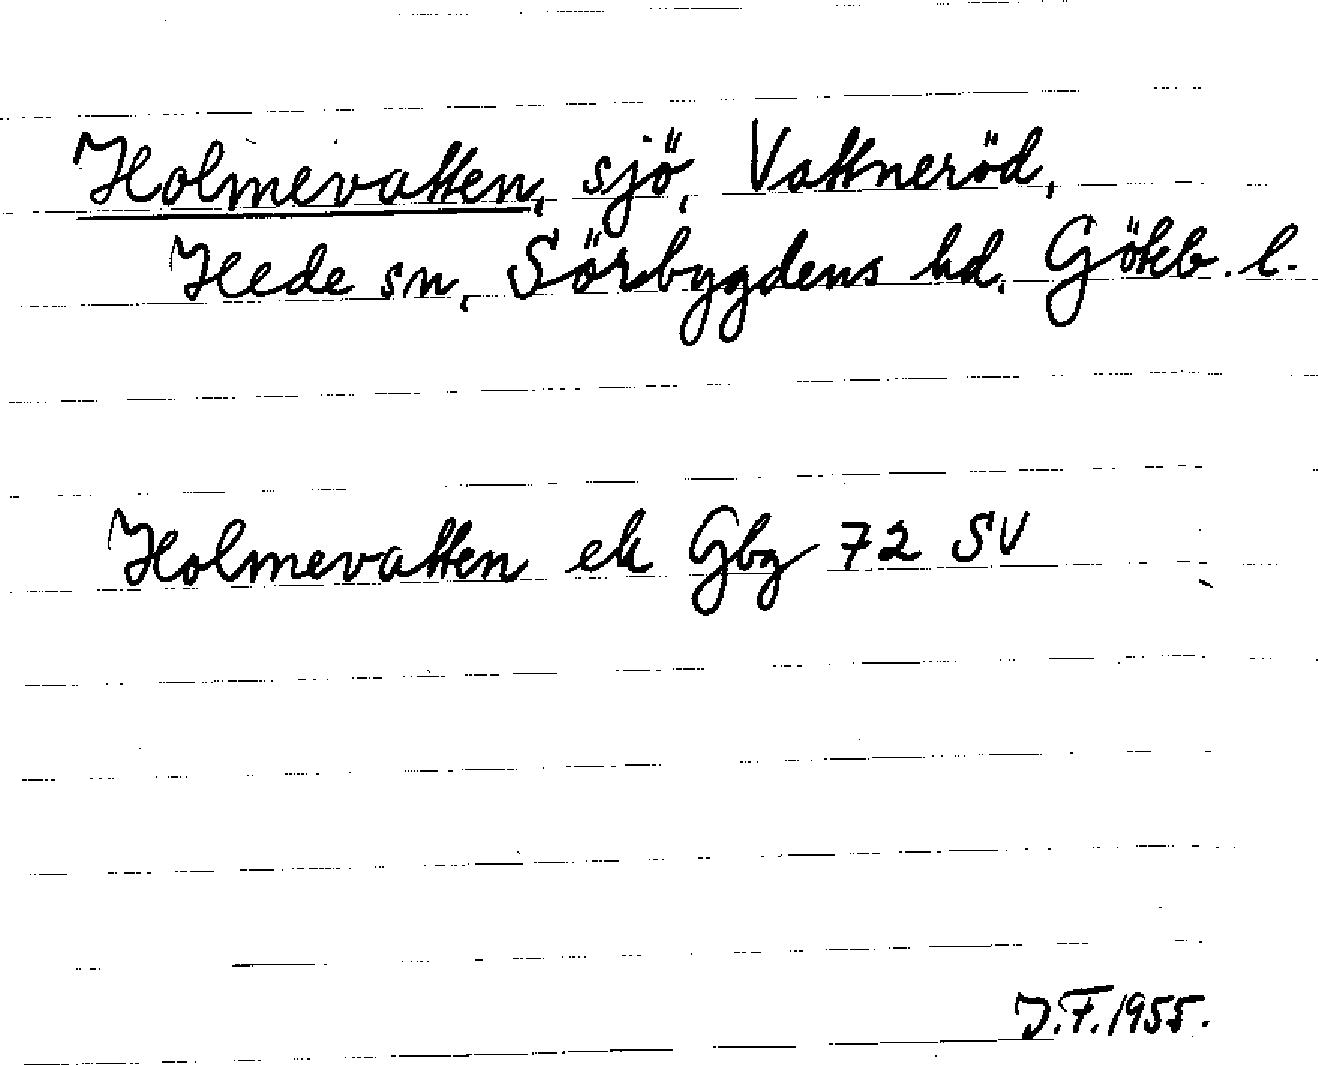 Holmevatten, sjö, Vattneröd,
Hede sn, Sörbygdens hd, Götkb. l.
Holmevatten ek Gbg 72 SV
J.F. 1955.